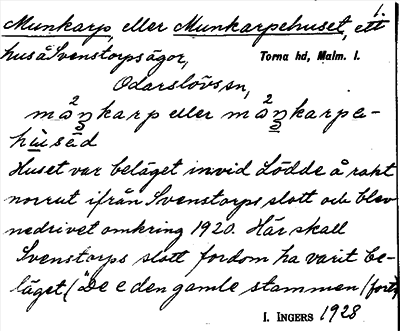 1.
Munkarp, eller Munkarpehuset, ett
hus å Svenstorps ägor,
Torna hd, Malm. l.
Odarslövs sn,
huset
Huset var beläget invid Lödde å rakt
norrut ifrån Svenstorps slott och blev
nedrivet omkring 1920. Här skall
Svenstorps slott fordom ha varit be-
läget ("De e den gamle stammen (forts
I. INGERS 1928